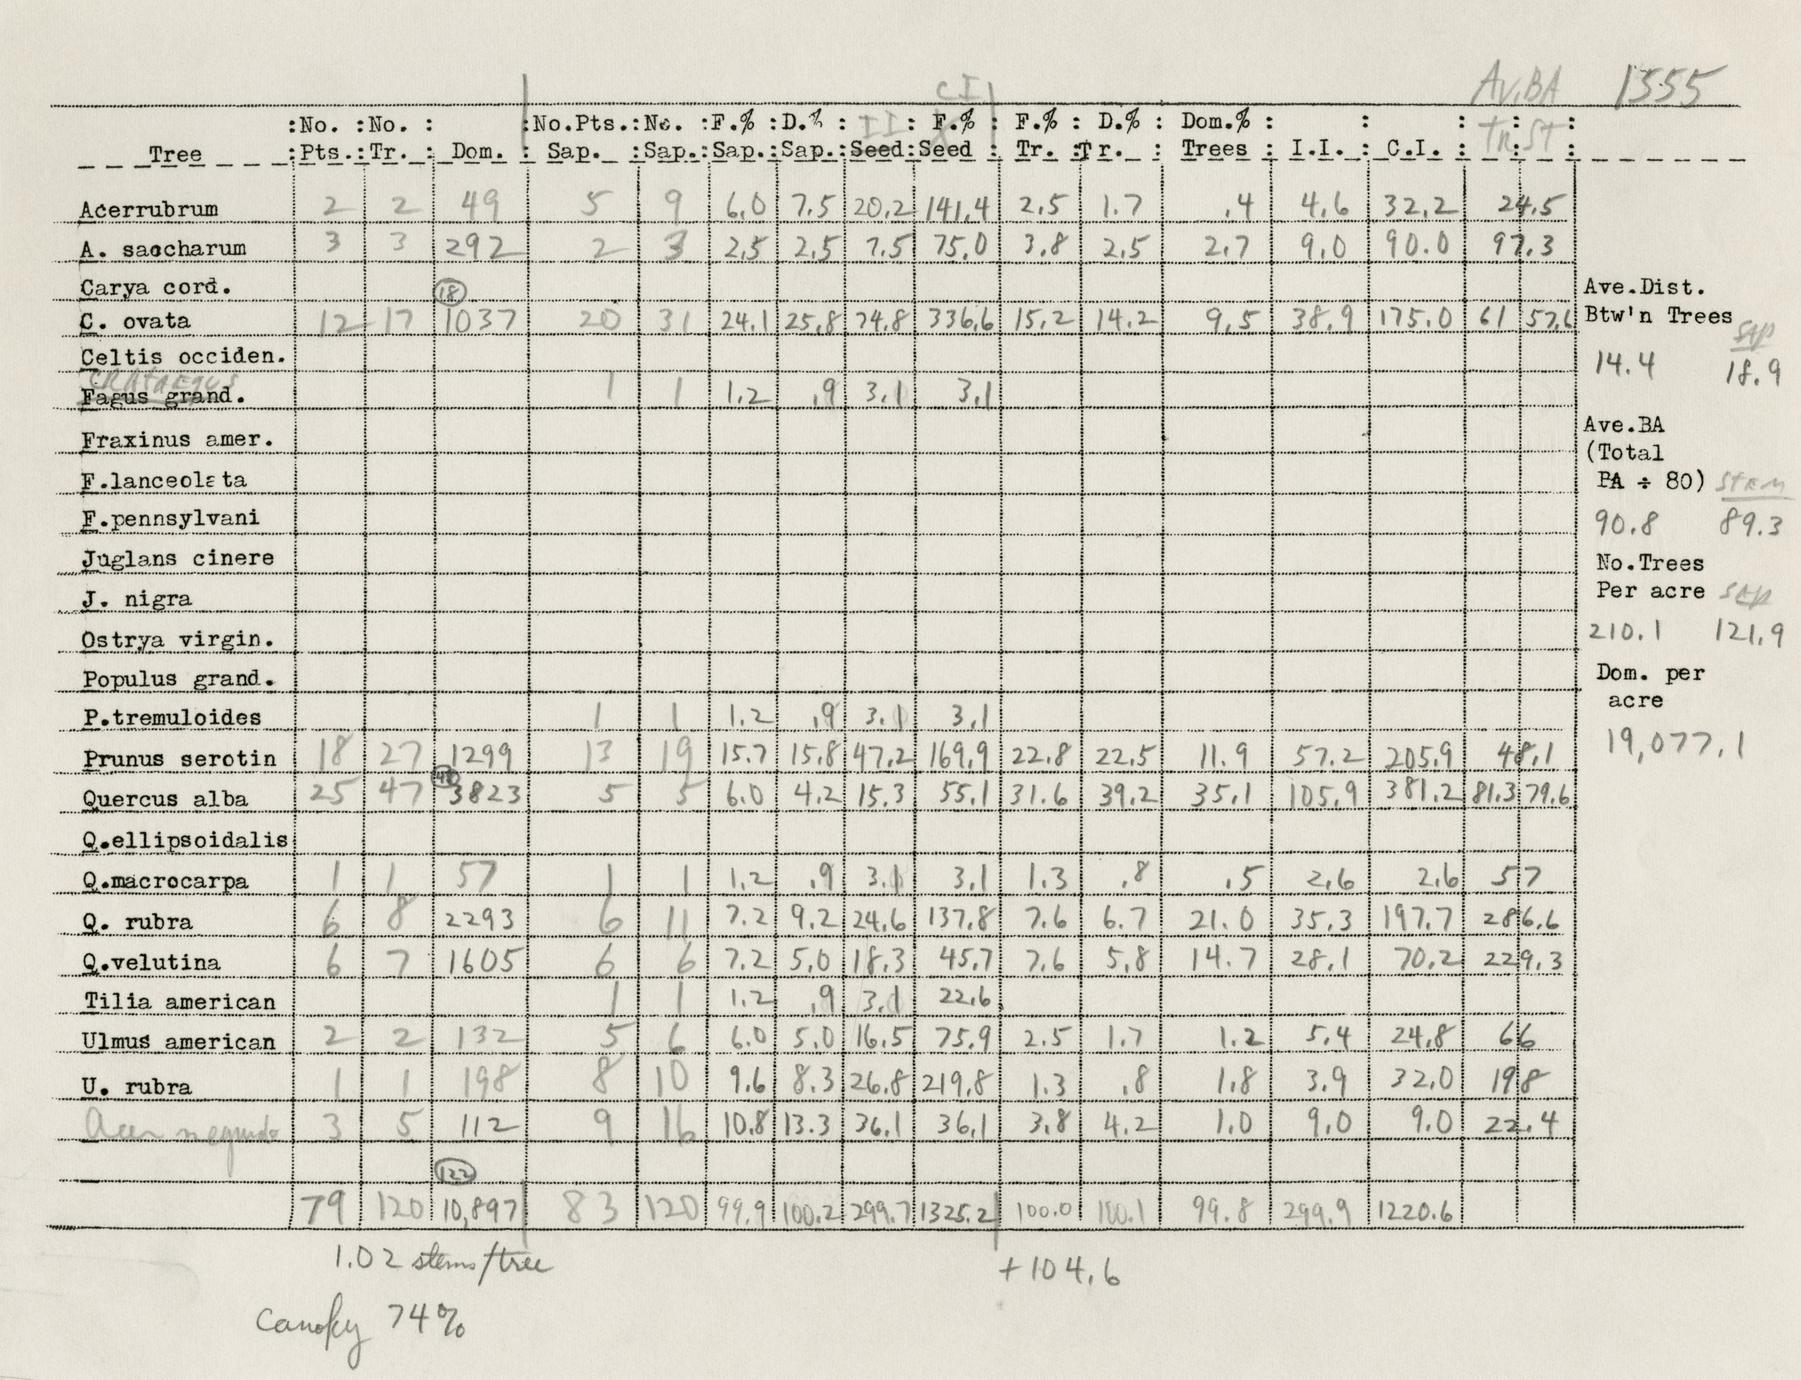 Av.BA 1555
CI
:No. :No. : :No.Pts.:No. :F.% :D.% : II : F.% : F.% : D.% : Dom.% : : : : :
Tree :Pts.:Tr. : Dom. : Sap. :Sap.:Sap.:Sap.:Seed:Seed : Tr. :Tr. : Trees : I.I. : C.I. : TR. ST :
Acerrubrum 2 2 49 5 9 6.0 7.5 20.2 141.4 2.5 1.7 .4 4.6 32.2 24.5
A. saccharum 3 3 292 2 3 2.5 2.5 7.5 75.0 3.8 2.5 2.7 9.0 90.0 97.3
Carya cord. 18
C. ovata 12 17 1037 20 31 24.1 25.8 74.8 336.6 15.2 14.2 9.5 38.9 175.0 61 57.6
Celtis occiden.
CRATAEGUS
Fagus grand. 1 1 1.2 .9 3.1 3.1
Fraxinus amer.
F.lanceolata
F.pennsylvani
Juglans cinere
J. nigra
Ostrya virgin.
Populus grand.
P.tremuloides 1 1 1.2 .9 3.1 3.1
Prunus serotin 18 27 1299 13 19 15.7 15.8 47.2 169.9 22.8 22.5 11.9 57.2 205.9 48.1
48
Quercus alba 25 47 3823 5 5 6.0 4.2 15.3 55.1 31.6 39.2 35.1 105.9 381.2 81.3 79.6
Q.ellipsoidalis
Q.macrocarpa 1 1 57 1 1 1.2 .9 3.1 3.1 1.3 .8 .5 2.6 2.6 57
Q. rubra 6 8 2293 6 11 7.2 9.2 24.6 137.8 7.6 6.7 21.0 35.3 197.7 286.6
Q.velutina 6 7 1605 6 6 7.2 5.0 18.3 45.7 7.6 5.8 14.7 28.1 70.2 229.3
Tilia american 1 1 1.2 .9 3.1 22.6
Ulmus american 2 2 132 5 6 6.0 5.0 16.5 75.9 2.5 1.7 1.2 5.4 24.8 66
U. rubra 1 1 198 8 10 9.6 8.3 26.8 219.8 1.3 .8 1.8 3.9 32.0 198
Acer negundo 3 5 112 9 16 10.8 13.3 36.1 36.1 3.8 4.2 1.0 9.0 9.0 22.4
122
79 120 10,897 83 120 99.9 100.2 299.7 1325.2 100.0 100.1 99.8 299.9 1220.6
1.02 stems/tree +104.6
canopy 74%
Ave.Dist.
Btw'n Trees
SAP
14.4 18.9
Ave.BA
(Total
BA ÷ 80) STEM
90.8 89.3
No.Trees
Per acre SAP
210.1 121.9
Dom. per
acre
19,077.1